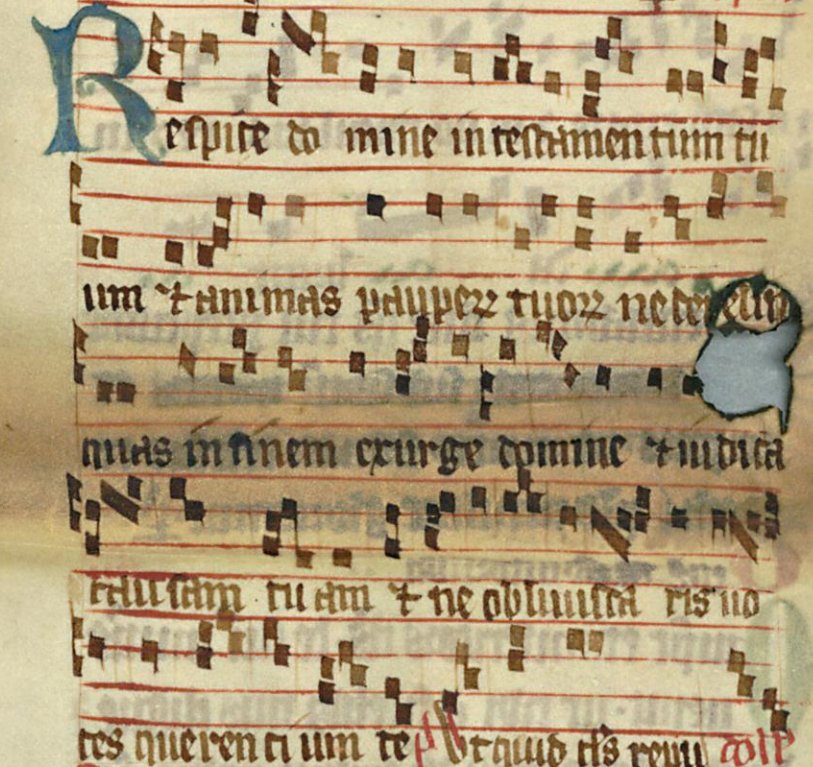 Respice do mine in testamentum tu
um ⁊ animas pauperꝝ tuorꝝ ne derelin
quas in finem exurge domine ⁊ iudica
causam tu am ⁊ ne obliuisca ris uo
ces querenti um te Ꝟ Vt quid ds̄ repu